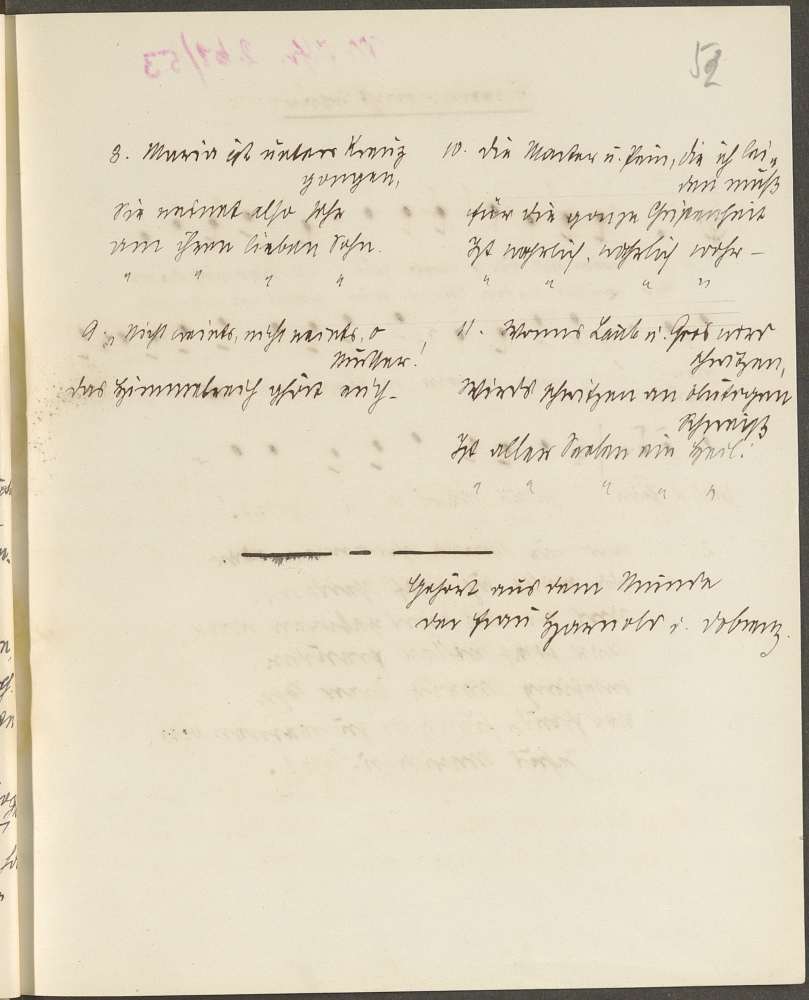 52
8. Maria ist unters Kreuz
gangen,
Sie weinet also sehr
um ihren lieben Sohn.
" " " "
9. „Nicht weints, nicht weints, o
Mutter!
das Himmelreich ghört euch –
10. Die Marter u. Pein, die ich lei-
den muß
für die ganze Christenheit
Ist wahrlich, wahrlich wahr –
" " " "
11. Wenns Laub u. Gras wird
schwitzen,
Wirds schwitzen an blutigen
Schweiß
Ist aller Seelen ein Heil.
" " " " "
Gehört aus dem Munde
der Frau Harnold i. Dobrenz.